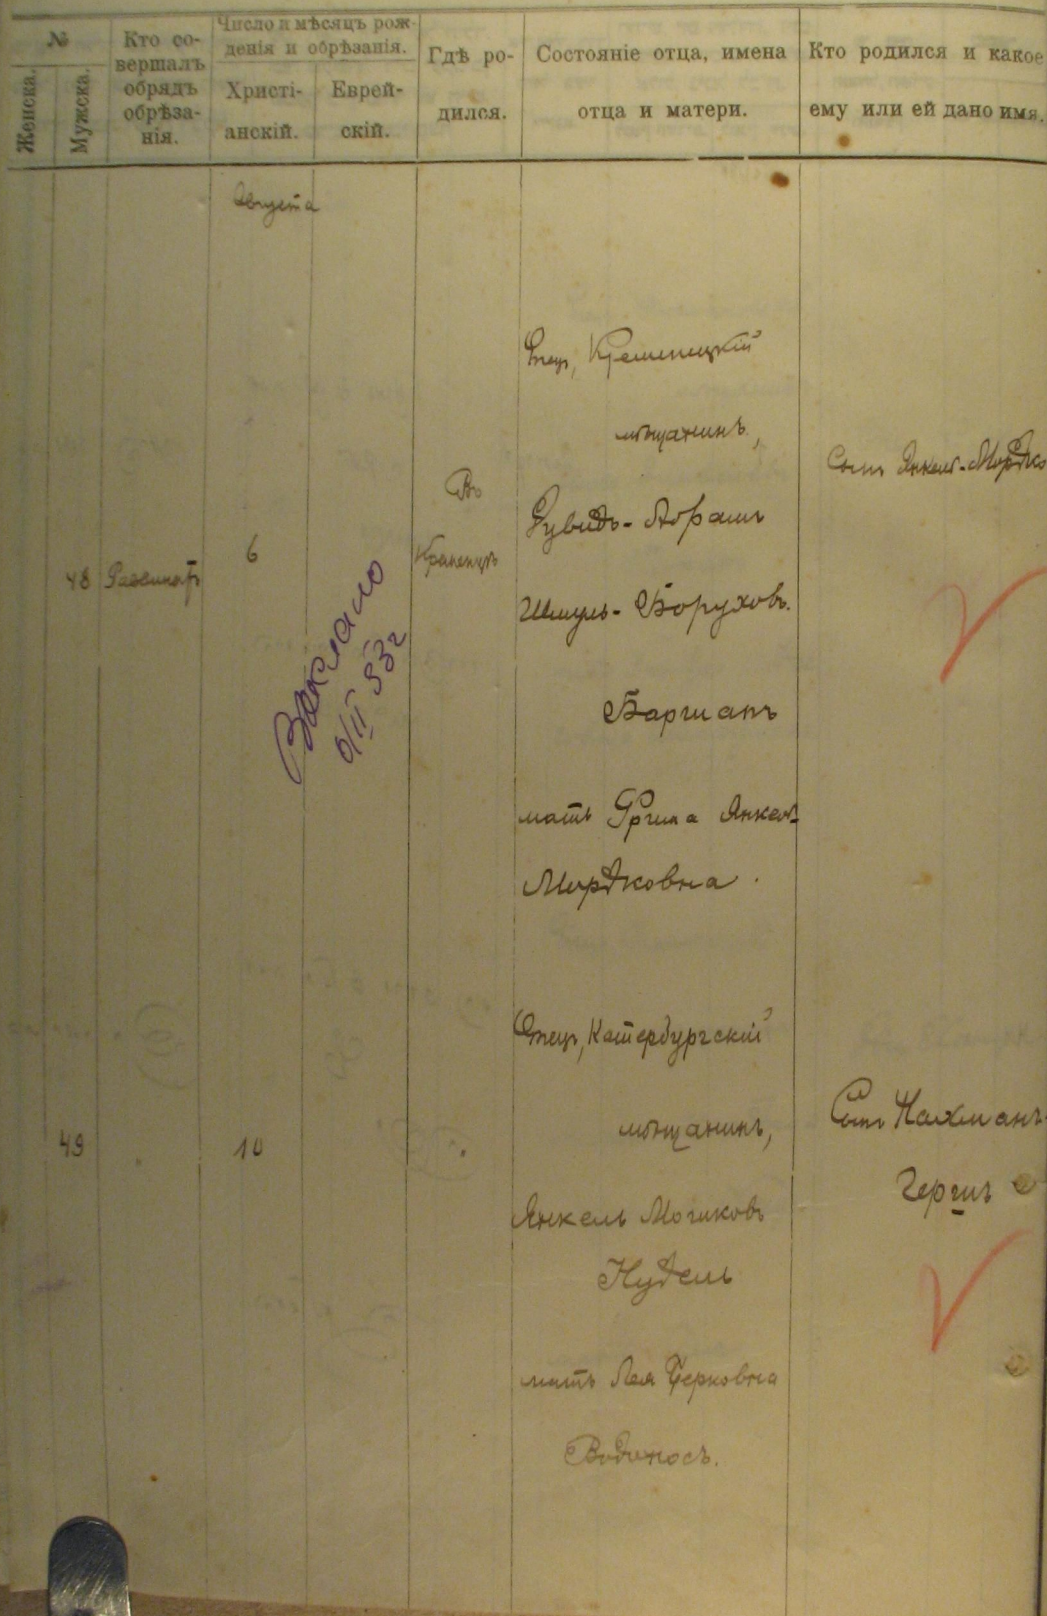 №
Женска.
Мужска.
Кто со-
вершалъ
обрядъ
обрѣза-
нія.
Число и мѣсяцъ рож-
денія и обрѣзанія.
Христі-
анскій.
Еврей-
скій.
Гдѣ ро-
дился.
Состояніе отца, имена
отца и матери.
Кто родился и какое
ему или ей дано имя.
Августа
48
6
Въ
Кременцѣ
Отецъ, Кременецкій
мѣщанинъ,
Дувидъ-Абрамъ
Шмуль-Боруховъ.
Баршапъ
мать Фрима Янкель-
Мордковна.
Сынъ Янкель-Мордко
6/III 53г
49
10
Отецъ, Катербургскій
мѣщанинъ,
Янкель Мошковъ
Нудель
мать Лея Берковна
Водоносъ.
Сынъ Нахманъ-
Гершъ